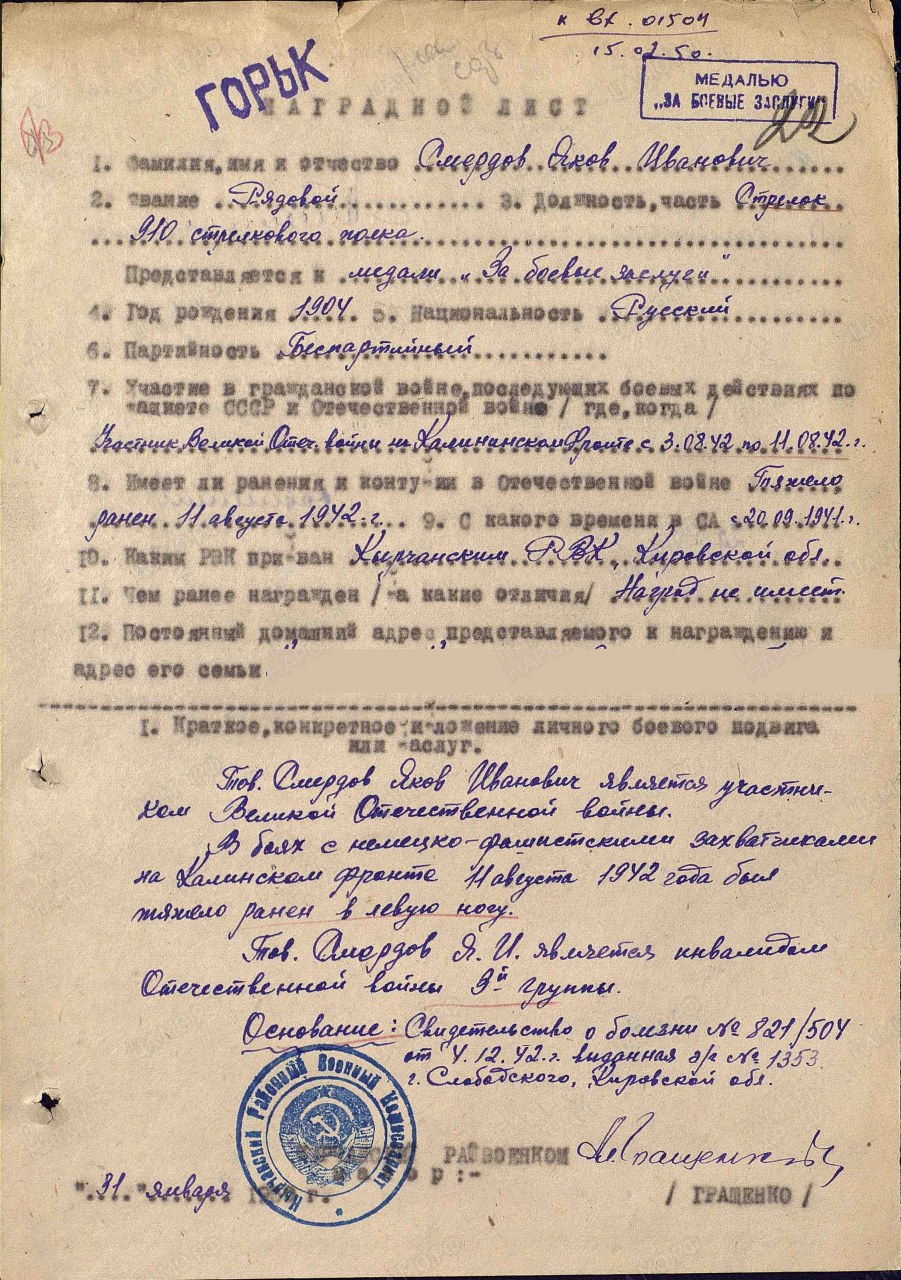 к вх. 01504
15.02.50.
ГОРЬК
МЕДАЛЬЮ
„ЗА БОЕВЫЕ ЗАСЛУГИ"
НАГРАДНОЙ ЛИСТ
1. Фамилия, имя и отчество Смердов Яков Иванович
2. звание Рядовой 3. Должность, часть Стрелок
910 стрелкового полка.
Представляется к медали „За боевые заслуги"
4. Год рождения 1904. 5. Национальность Русский
6. Партийность Беспартийный
7. Участие в гражданской войне, последующих боевых действиях по
защите СССР и Отечественной войне / где, когда /
Участник Великой Отеч. войны на Калининском Фронте с 3.08.42 по 11.08.42 г.
8. Имеет ли ранения и контузии в Отечественной войне Тяжело
ранен 11 августа 1942 г. 9. С какого времени в СА с 20.09.1941 г.
10. Каким РВК призван Кырчанским РВК, Кировской обл.
11. Чем ранее награжден / за какие отличия / Наград не имеет.
12. Постоянный домашний адрес представляемого к награждению и
адрес его семьи
I. Краткое, конкретное изложение личного боевого подвига
или заслуг.
Тов. Смердов Яков Иванович является участни-
ком Великой Отечественной войны.
В боях с немецко-фашистскими захватчиками
на Калинском фронте 11 августа 1942 года был
тяжело ранен в левую ногу.
Тов. Смердов Я. И. является инвалидом
Отечественной войны 3й группы.
Основание: Свидетельство о болезни № 821/504
от 4.12.42 г. виданная э/г № 1353
г. Слободского, Кировской обл.
Кырчанский Районный Военный Комиссариат
РАЙВОЕНКОМ
майор:-
"31" января г. / ГРАЩЕНКО /